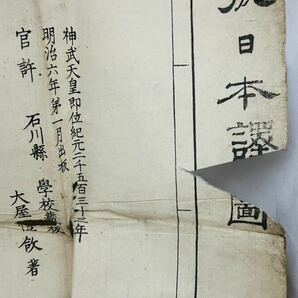 日本圖
神武天皇即位紀元二千五百三十三年
明治六年第一月出板
官許 石川縣 學校
大屋愷敆著